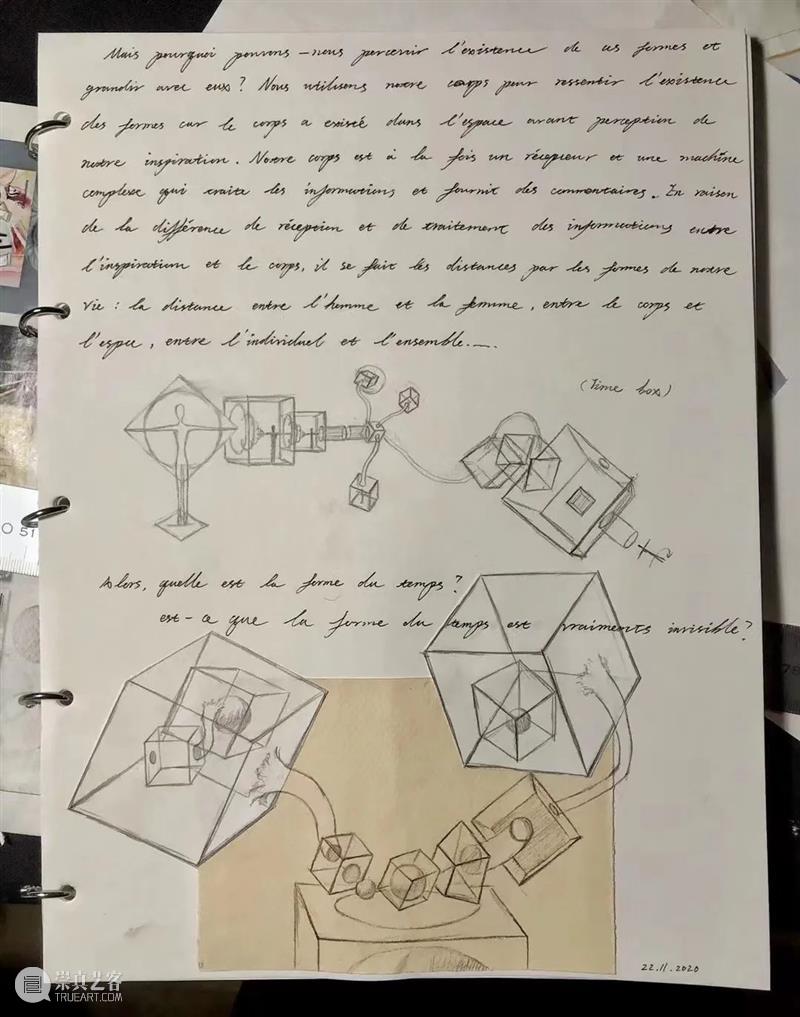 Mais pourquoi pouvons-nous percevoir l'existence de ces formes et
grandir avec eux? Nous utilisons notre corps pour ressentir l'existence
des formes car le corps a existé dans l'espace avant perception de
notre inspiration. Notre corps est à la fois un récepteur et une machine
complexe qui traite les informations et fournit des commentaires. En raison
de la différence de réception et de traitement des informations entre
l'inspiration et le corps, il se fait les distances par les formes de notre
vie : la distance entre l'homme et la femme, entre le corps et
l'espace, entre l'individuel et l'ensemble.....
(Time box)
Alors, quelle est la forme du temps?
est-ce que la forme du temps est vraiments invisible?
22.11.2020
崇真艺客
TRUEART.COM
05